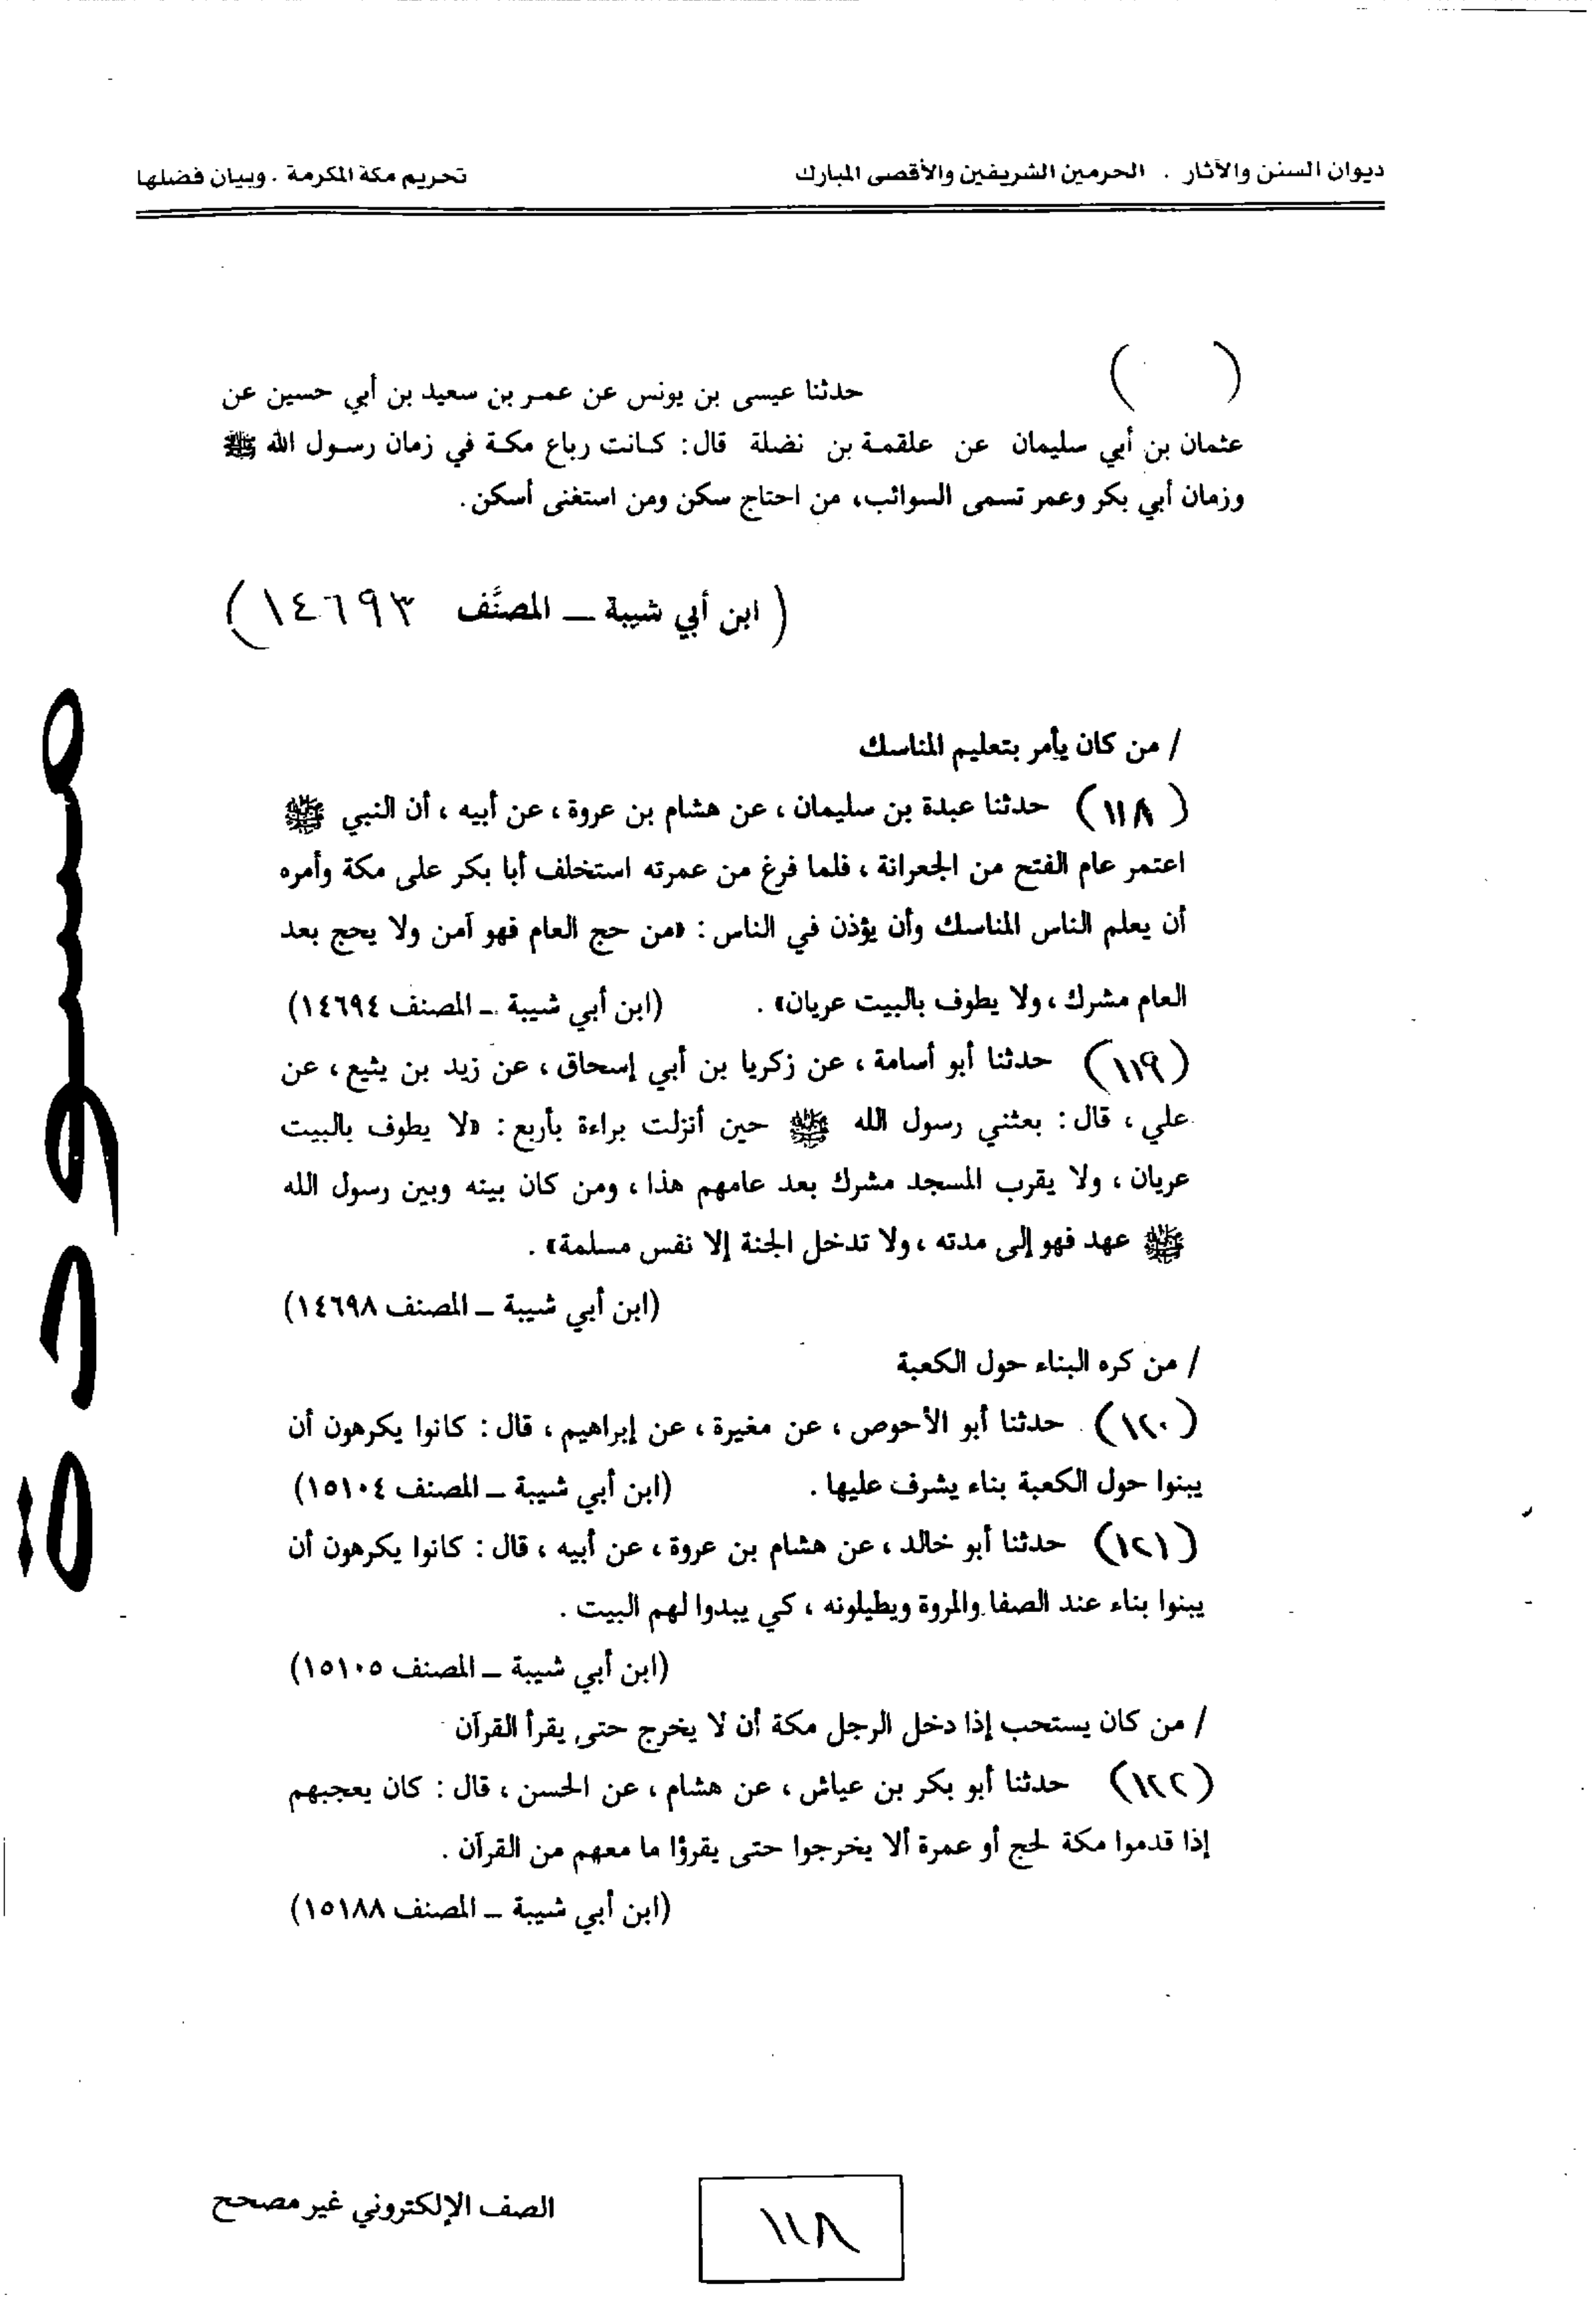 ديوان السنن والآثار . الحرمين الشريفين والأقصى المبارك تحريم مكة المكرمة . وبيان فضلها
( ) حدثنا عيسى بن يونس عن عمر بن سعيد بن أبي حسين عن
عثمان بن أبي سليمان عن علقمة بن نضلة قال: كانت رباع مكة في زمان رسول الله ﷺ
وزمان أبي بكر وعمر تسمى السوائب، من احتاج سكن ومن استغنى أسكن.
( ابن أبي شيبة ــ المصنَّف ١٤٦٩٣ )
/ من كان يأمر بتعليم المناسك
( ١١٨ ) حدثنا عبدة بن سليمان ، عن هشام بن عروة ، عن أبيه ، أن النبي ﷺ
اعتمر عام الفتح من الجعرانة ، فلما فرغ من عمرته استخلف أبا بكر على مكة وأمره
أن يعلم الناس المناسك وأن يؤذن في الناس : «من حج العام فهو آمن ولا يحج بعد
العام مشرك ، ولا يطوف بالبيت عريان» . (ابن أبي شيبة ــ المصنف ١٤٦٩٤)
( ١١٩ ) حدثنا أبو أسامة ، عن زكريا بن أبي إسحاق ، عن زيد بن يثيع ، عن
علي ، قال : بعثني رسول الله ﷺ حين أنزلت براءة بأربع : «لا يطوف بالبيت
عريان ، ولا يقرب المسجد مشرك بعد عامهم هذا ، ومن كان بينه وبين رسول الله
ﷺ عهد فهو إلى مدته ، ولا تدخل الجنة إلا نفس مسلمة» .
(ابن أبي شيبة ــ المصنف ١٤٦٩٨)
/ من كره البناء حول الكعبة
( ١٢٠ ) حدثنا أبو الأحوص ، عن مغيرة ، عن إبراهيم ، قال : كانوا يكرهون أن
يبنوا حول الكعبة بناء يشرف عليها . (ابن أبي شيبة ــ المصنف ١٥١٠٤)
( ١٢١ ) حدثنا أبو خالد ، عن هشام بن عروة ، عن أبيه ، قال : كانوا يكرهون أن
يبنوا بناء عند الصفا والمروة ويطيلونه ، كي يبدوا لهم البيت .
(ابن أبي شيبة ــ المصنف ١٥١٠٥)
/ من كان يستحب إذا دخل الرجل مكة أن لا يخرج حتى يقرأ القرآن
( ١٢٢ ) حدثنا أبو بكر بن عياش ، عن هشام ، عن الحسن ، قال : كان يعجبهم
إذا قدموا مكة لحج أو عمرة ألا يخرجوا حتى يقرؤا ما معهم من القرآن .
(ابن أبي شيبة ــ المصنف ١٥١٨٨)
مسودة
١١٨
الصف الإلكتروني غير مصحح